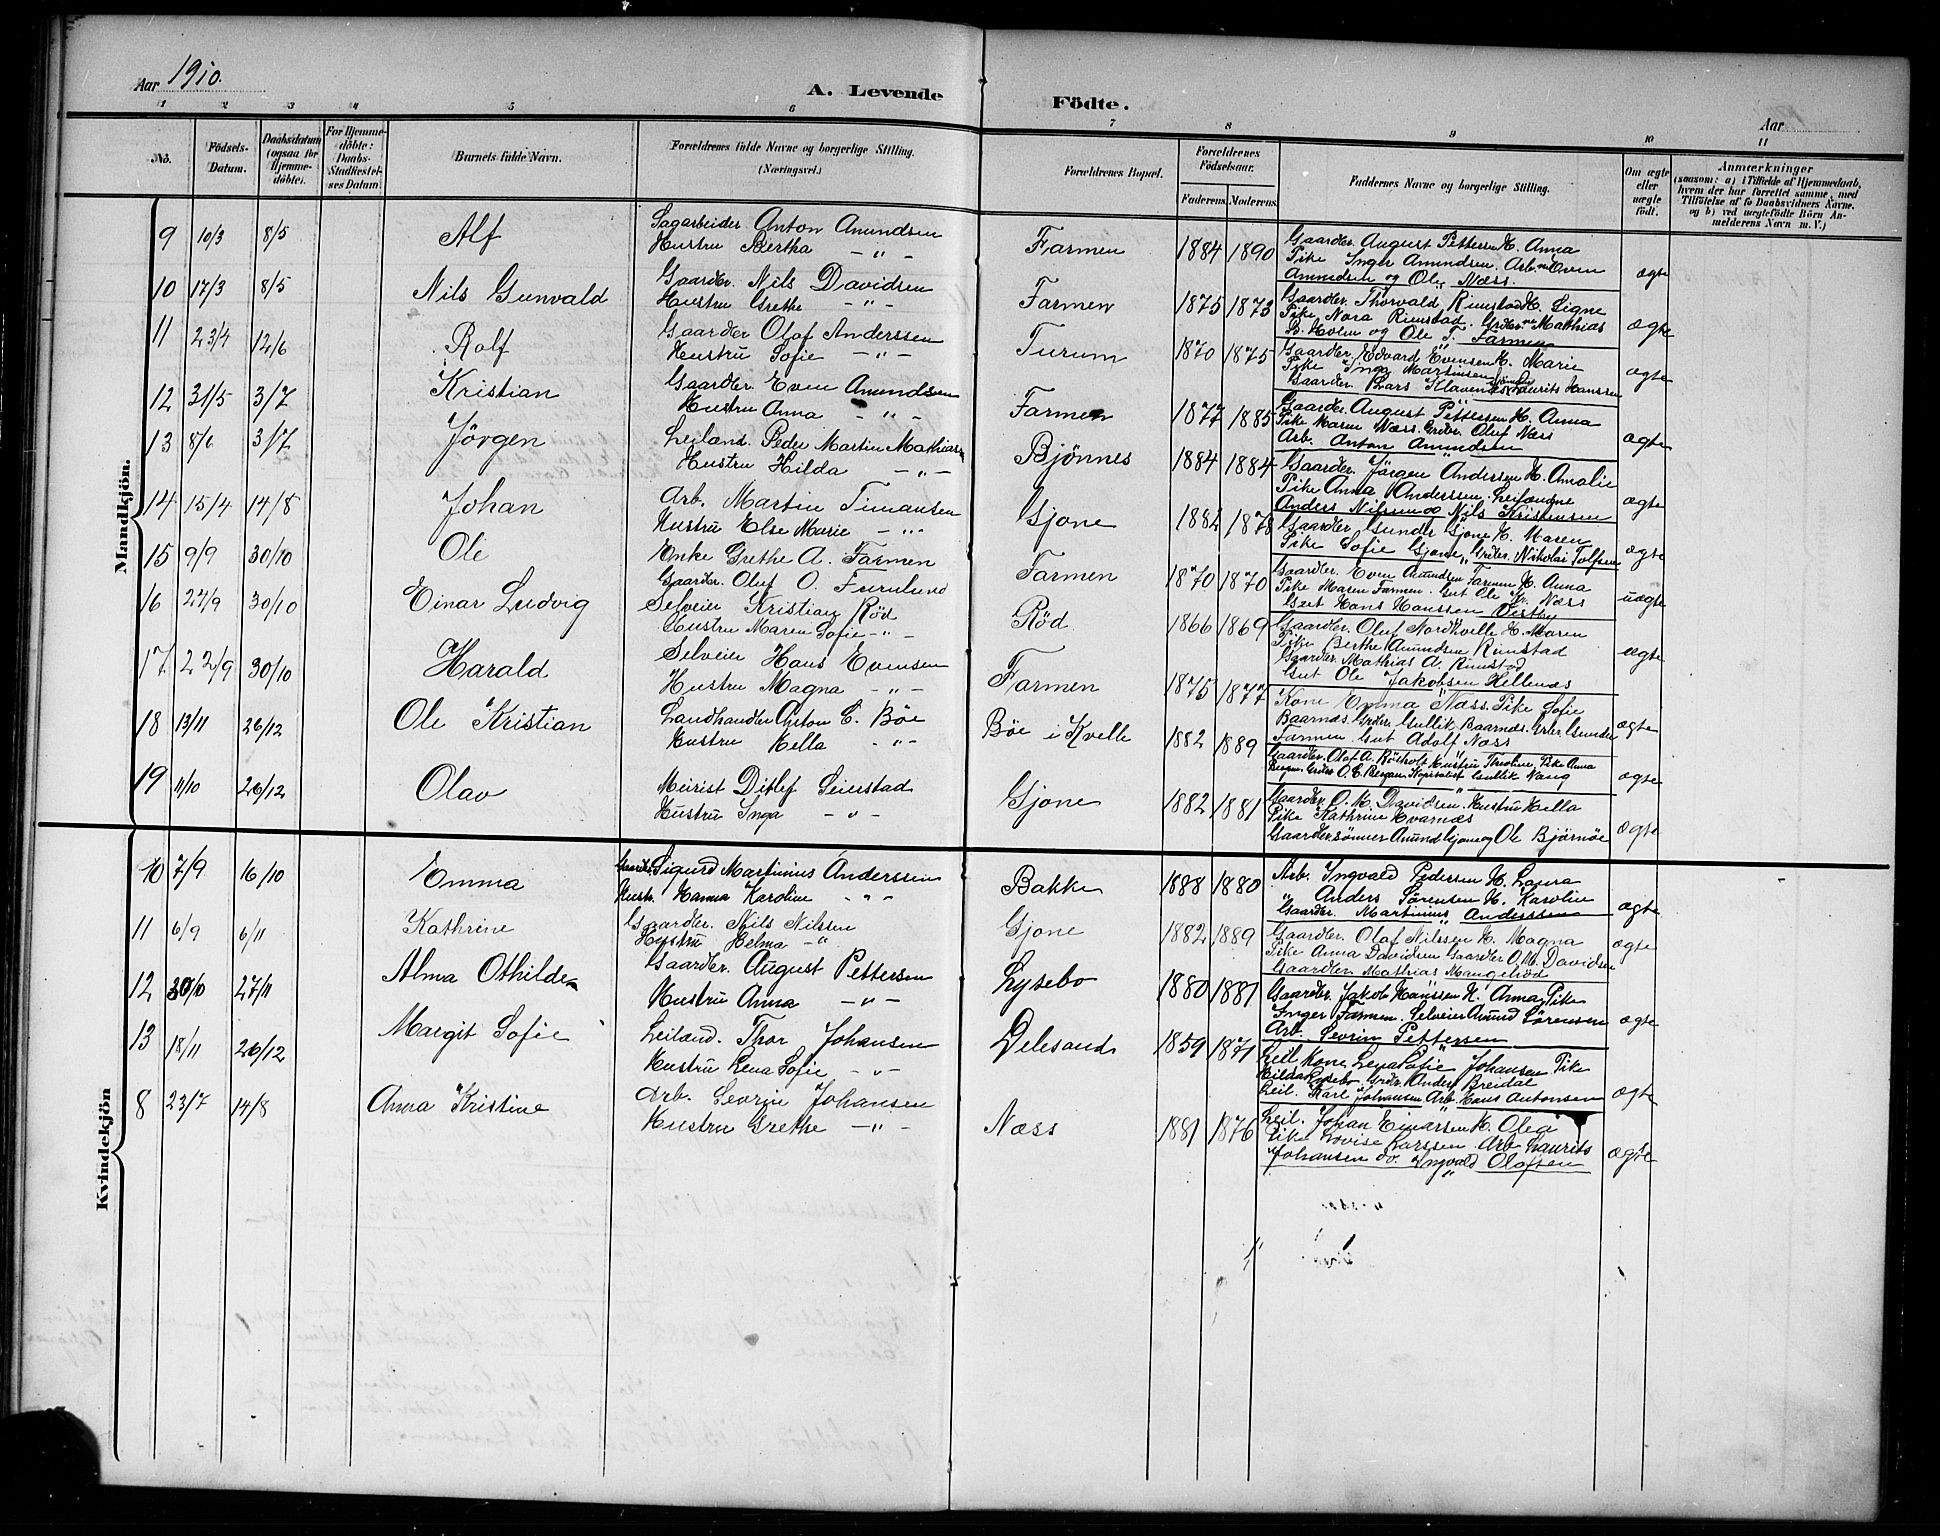 Aar 1910.
A. Levende Födte.
Aar
1 2 3 4 5 6 7 8 9 10 11
No.
Födsels-Datum.
Daabsdatum (ogsaa for Hjemme-döbte).
For Hjemme-döbte: Daabs-Stadfæstel-ses Datum.
Barnets fulde Navn.
Forældrenes fulde Navne og borgerlige Stilling. (Næringsvei.)
Forældrenes Bopæl.
Forældrenes Födselsaar.
Faderens. Moderens.
Faddernes Navne og borgerlige Stilling.
Om ægte eller uægte födt.
Anmærkninger
(saasom: a) i Tilfælde af Hjemmedaab, hvem der har forrettet samme, med Tilföielse af to Daabsvidners Navne, og b) ved uægtefödte Börn An-melderens Navn m. V.)
Mandkjön.
9 10/3 8/5 Alf Sagarbeider Anton Amundsen
Hustru Bertha — " — Farmen 1884 1890 Gaardbr. August Pettersen H. Anna
Pike Inger Amundsen. Arb. Even
Amundsen og Ole Næss. ægte
10 17/3 8/5 Nils Gunvald Gaardbr. Nils Davidsen
Hustru Grethe — " — Farmen 1875 1873 Gaardbr. Thorvald Rimstad H. Signe
Pike Nora Rimstad. Grdbr. Mathias
B. Holm og Ole T. Farmen ægte
11 23/4 12/6 Rolf Gaardbr Olaf Anderssen
Hustru Sofie — " — Furum 1870 1875 Gaardbr. Edvard Evensen H. Marie
Pike Inga Martinsen
Gaardbr. Lars Klavenes Laurits Hanssen ægte
12 31/5 3/7 Kristian Gaardbr. Even Amundsen
Hustru Anna " — Farmen 1877 1885 Gaardbr. August Pettersen H. Anna
Pike Maren Næss. Grdbr. Oluf Næss
Arb. Anton Amundsen ægte
13 8/6 3/7 Jörgen Leiland. Peder Martin Mathias
Hustru Hilda — " — Bjönnes 1884 1884 Gaardbr. Jörgen Andersen H. Amalie
Pike Anna Anderssen. Leilændne
Anders Nilssen og Nils Kristensen ægte
14 15/4 14/8 Johan Arb. Martin Timansen
Hustru Else Marie — " — Gjone 1882 1878 Gaardbr. Gunder Gjone H. Maren
Pike Sofie Gjone, Grdbr. Nikolai Tolfsen ægte
15 9/9 30/10 Ole Enke Grethe A. Farmen
Gaardbr. Oluf O. Furulund Farmen 1870 1870 Gaardbr. Even Amundsen Farmen H. Anna
Pike Maren Farmen. Gut Ole Kr. Næss
Gut Hans Hanssen Vestby uægte
16 27/9 30/10 Einar Ludvig Selveier Kristian Röd
Hustru Maren Sofie — " — Röd 1866 1869 Gaardbr. Oluf Nordkvelle H. Maren
Pike Berthe Amundsen Rimstad
Gaardbr. Mathias A. Rimstad
Gut Ole Jakobsen Hellenæs ægte
17 22/9 30/10 Harald Selveier Hans Evensen
Hustru Magna — " — Farmen 1875 1877 Kone Emma Næss. Pike Sofie
Baarnæs. Grdbr. Gullik Baarnæs. Grbr Gunder
Farmen Gut Adolf Næss ægte
18 13/11 26/12 Ole Kristian Landhandler Anton C. Böe
Hustru Hella — " — Böe i Kvelle 1882 1889 Gaardbr. Olaf A. Bötholt Hustru Theoline, Pike Anna
Bergan. Grdbr O. C. Bergan Gullik Nang ægte
19 11/10 26/12 Olav Murist Ditlef Seierstad
Hustru Inga — " — Gjone 1882 1881 Gaardbr. O. M. Davidsen. Hustru Hella
Pike Kathrine Hvarnæs
Gaardbrsönner Amund Gjone og Ole Bjørnöe ægte
Kvindekjön
10 7/9 16/10 Emma Gaardbr. Sigurd Martinius Anderssen
Hustr. Hanna Karoline — " — Bakke 1888 1880 Arb. Ingvald Pedersen H. Laura
" Anders Sörensen H. Karoline
Gaardbr. Martinius Anderssen ægte
11 6/9 6/11 Kathrine Gaardbr. Nils Nilssen
Hustru Helma — " Gjone 1882 1889 Gaardbr. Olaf Nilssen H. Magna
Pike Anna Davidsen Gaardbr O. M. Davidsen
Gaardbr. Mathias Mangelröd ægte
12 30/10 27/11 Alma Othilde Gaardbr. August Pettersen
Hustru Anna — " — Lysebo 1880 1881 Gaardbr. Jakob Hanssen H. Anna, Pike
Inger Farmen. Selveier Amund Sörensen
Arb. Sevrin Pettersen ægte
13 18/11 26/12 Margit Sofie Leiland. Thor Johansen
Hustru Lena Sofie — " — Delesand 1859 1871 Leil Kone Lena Sofie Johansen Pike
Hilda Lysebo Grdbr. Anders Breidal
Leil. Karl Johansen Arb. Hans Antonsen ægte
8 23/7 14/8 Anna Kristine Arb. Sevrin Johansen
Hustru Grethe — " — Næss 1881 1876 Leil. Johan Einarssen H. Olea
Pike Lovise Larssen. Arb Laurits
Johansen do. Ingvald Olafsen ægte